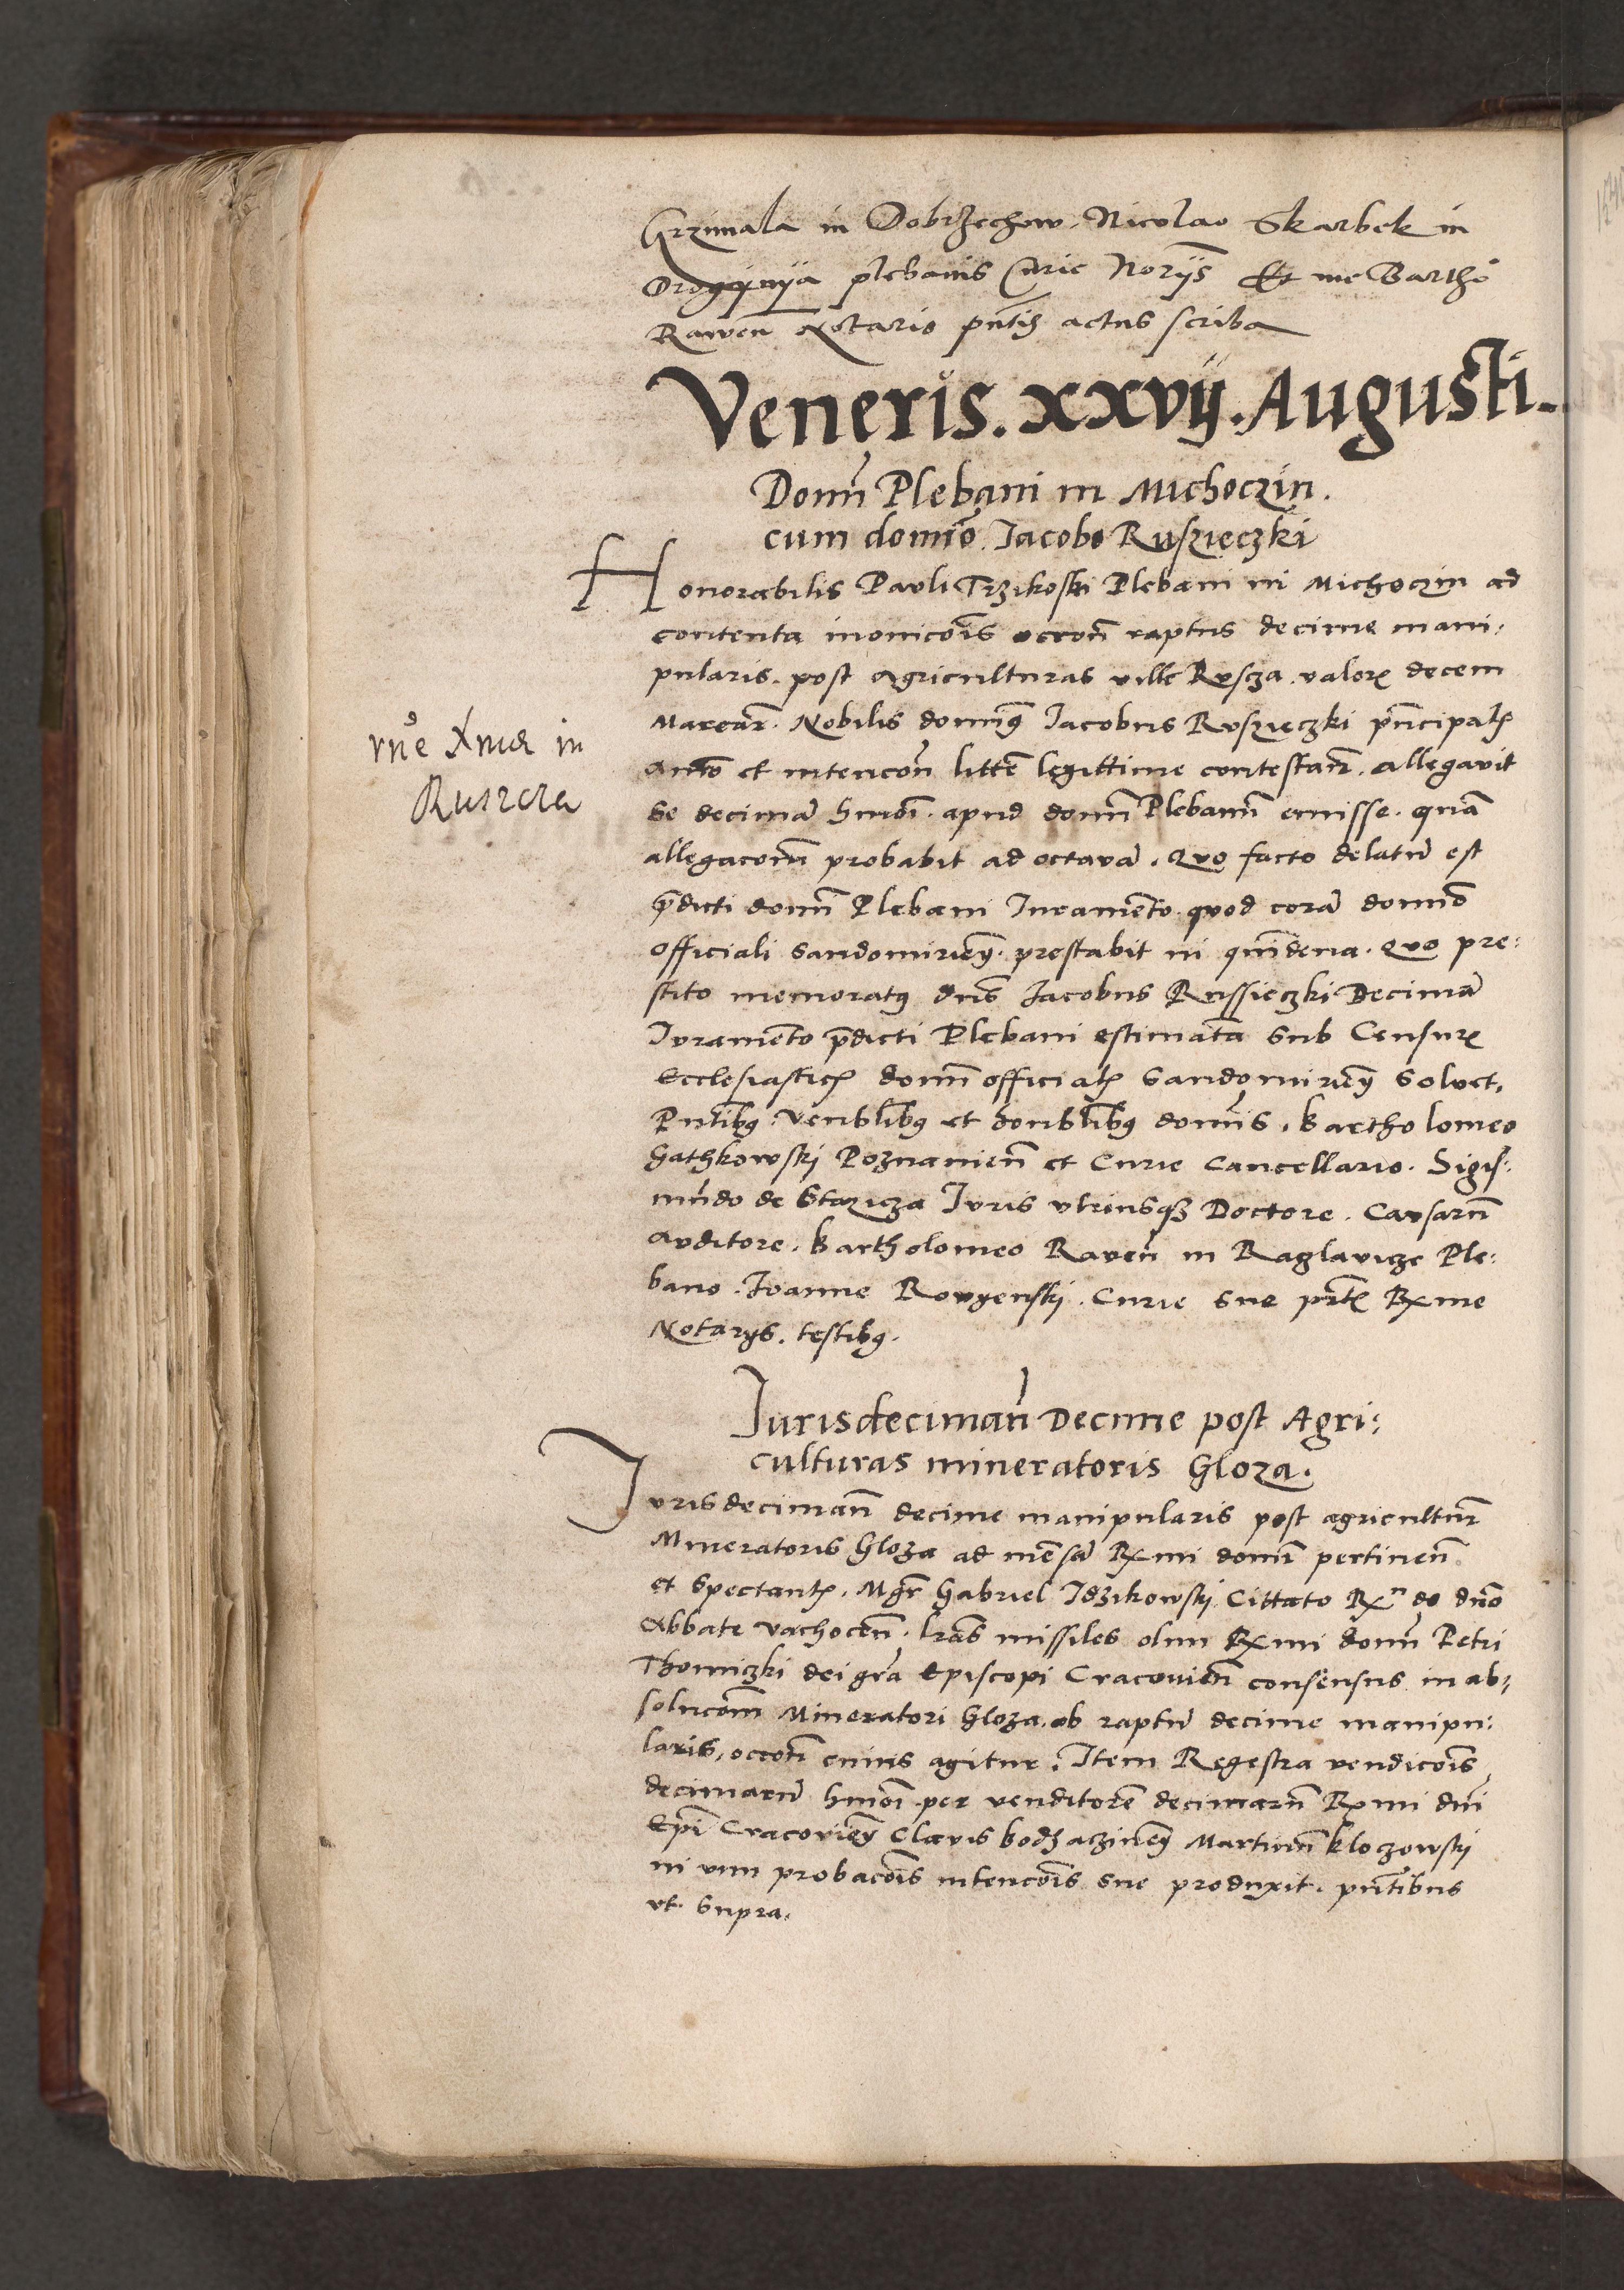 Grzimala in Dobrzechow. Nicolao Skarbek in
plebanis Curie Noriis Et me Bartho
Rawen̄ Notario pn̄tis actus scriba
Veneris. xxvij. Augusti.
Domī Plebani in Michoczin.
cum domīo. Iacobo Ruszieczki
Honorabilis Pauli Trzikoski Plebani in Michoczin ad
contenta inonicōis occon̄ raptus decime mani:
pularis. post agriculturas ville Rvscza. valor decem
Marcar̄. Nobilis dominꝰ Iacobus Rvszieczki prīncipal
et intencōn̄ littē legittime contestan̄. allegavit
se decimā hmōi. apud domī Plebanū emisse. quā
allegacōem probabit ad octavā. Qvo facto delatū est
p̄dicti domī Plebani Iuramēto. qvod corā domīo
officiali Sandomirieꝫ. prestabit in quīdena. Qvo pre:
stito memoratꝰ dn̄s Iacobus Russieczki Decimā
Ivramēto p̄dicti Plebani estimatā sub Censur
Ecclesiastic domī official Sandomirieꝫ solvet.
Pn̄tibꝰ. Ven̄blibꝰ et hon̄blibꝰ domīs. Bartholomeo
Gathkowskj Poznanien̄ et Curie Cancellario. Sigis:
mūdo de Stazicza Ivris vtriusqꝫ Doctore. Cavsarū
avditore. Bartholomeo Raven̄ in Raglavicze Ple:
bano. Ioanne Rovyenskj. Curie sue prt Rx̄me
Notarys. testibꝰ.
rn̄e Xma in
Ruszcza
Iurisdeciman̄ Decime post Agri:
culturas mineratoris Gloza.
Ivrisdeciman̄ decime manipularis post agricultur̄
Mineratoris Gloza ad mēsā Rx̄mi domī pertinen̄
et spectant. Mgr̄ Gabriel Idzikowskj Cittato Rx̄n̄do dn̄o
Abbate Vachocen̄. lr̄as missiles olim Rx̄mi domī Petri
Thomiczki dei grā Episcopi Cracovien̄ consensus in ab:
solucōem Mineratori Gloza. ob raptū decime manipu:
laris, occōn̄ cuius agitur. Item Regestra vendicōis
decimarū hmōi per venditorē decimarū Rx̄mi dn̄i
Ep̄i Cracovieꝫ Clavis bodzaczineꝫ Martinū Kloczowskj
in vim probacōis intencōis sue produxit. pn̄tibus
vt. supra.